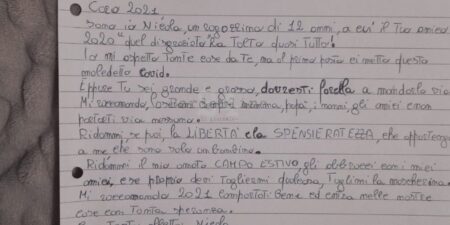 Cara 2021
Sono io Nicola, un ragazzino di 12 anni, a cui il tuo amico
2020 "quel disgraziato" ha tolto quasi tutto!
Io mi aspetto tante cose da te, ma al primo posto ci metto questo
maledetto covid.
Eppure tu sei grande e grosso, dovresti farcela a mandarlo via
Mi raccomando, mamma, papà, i nonni, gli amici e non
portarti via nessuno.
Ridammi, se puoi, la LIBERTÀ e la SPENSIERATEZZA, che appartengono
a me che sono solo un bambino.
Ridammi il mio amato CAMPO ESTIVO, gli abbracci con i miei
amici, e se proprio devi togliermi qualcosa, toglimi la mascherina.
Mi raccomando 2021 comportati bene ed entra nelle nostre
case con tanta speranza.